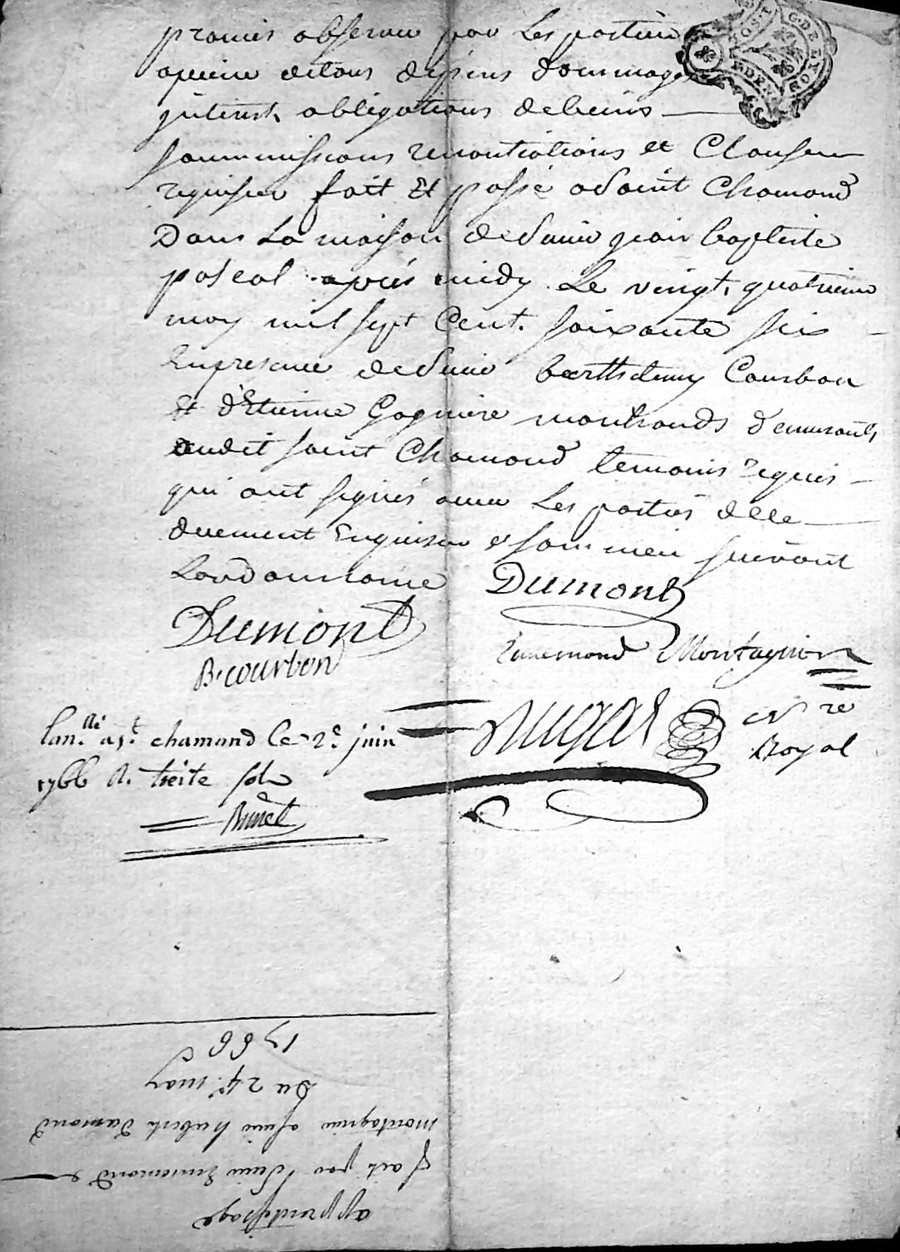 promis observer par les parties
apeine detous depens dommages
interest obligations debiens
soummissions renontiations et Clauses
requises fait Et passé asaint Chamond
Dans La maison desieur jean baptiste
pascal après midy Le vingt quatrieme
may mil sept Cent soixante six
Enpresence desieur barthelemy Courbon
Et d'Etienne Gagniere marchands demeurants
audit saint Chamond temoins requis
qui ont signés avec Les parties dece
duement Enquises et sommées suivant
Lordonnance
Dumont
Dumont
B. courbon
Ennemond Montagnion
Con.lé a St. chamond le 2e juin
1766 R. treize sols
nre
Royal
apprentissage
fait par sieur Ennemond
montagnion asieur hubert Dumond
Du 24e may
1766